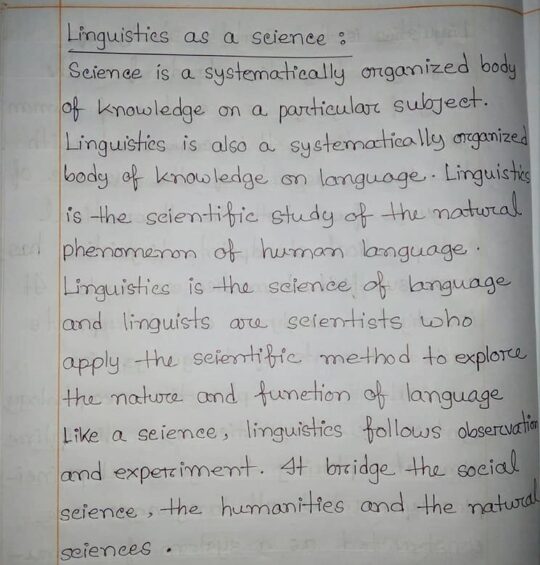 Linguistics as a science :
Science is a systematically organized body
of knowledge on a particular subject.
Linguistics is also a systematically organized
body of knowledge on language. Linguistics
is the scientific study of the natural
phenomenon of human language.
Linguistics is the science of language
and linguists are scientists who
apply the scientific method to explore
the nature and function of language
Like a science, linguistics follows observation
and experiment. It bridge the social
science, the humanities and the natural
sciences.